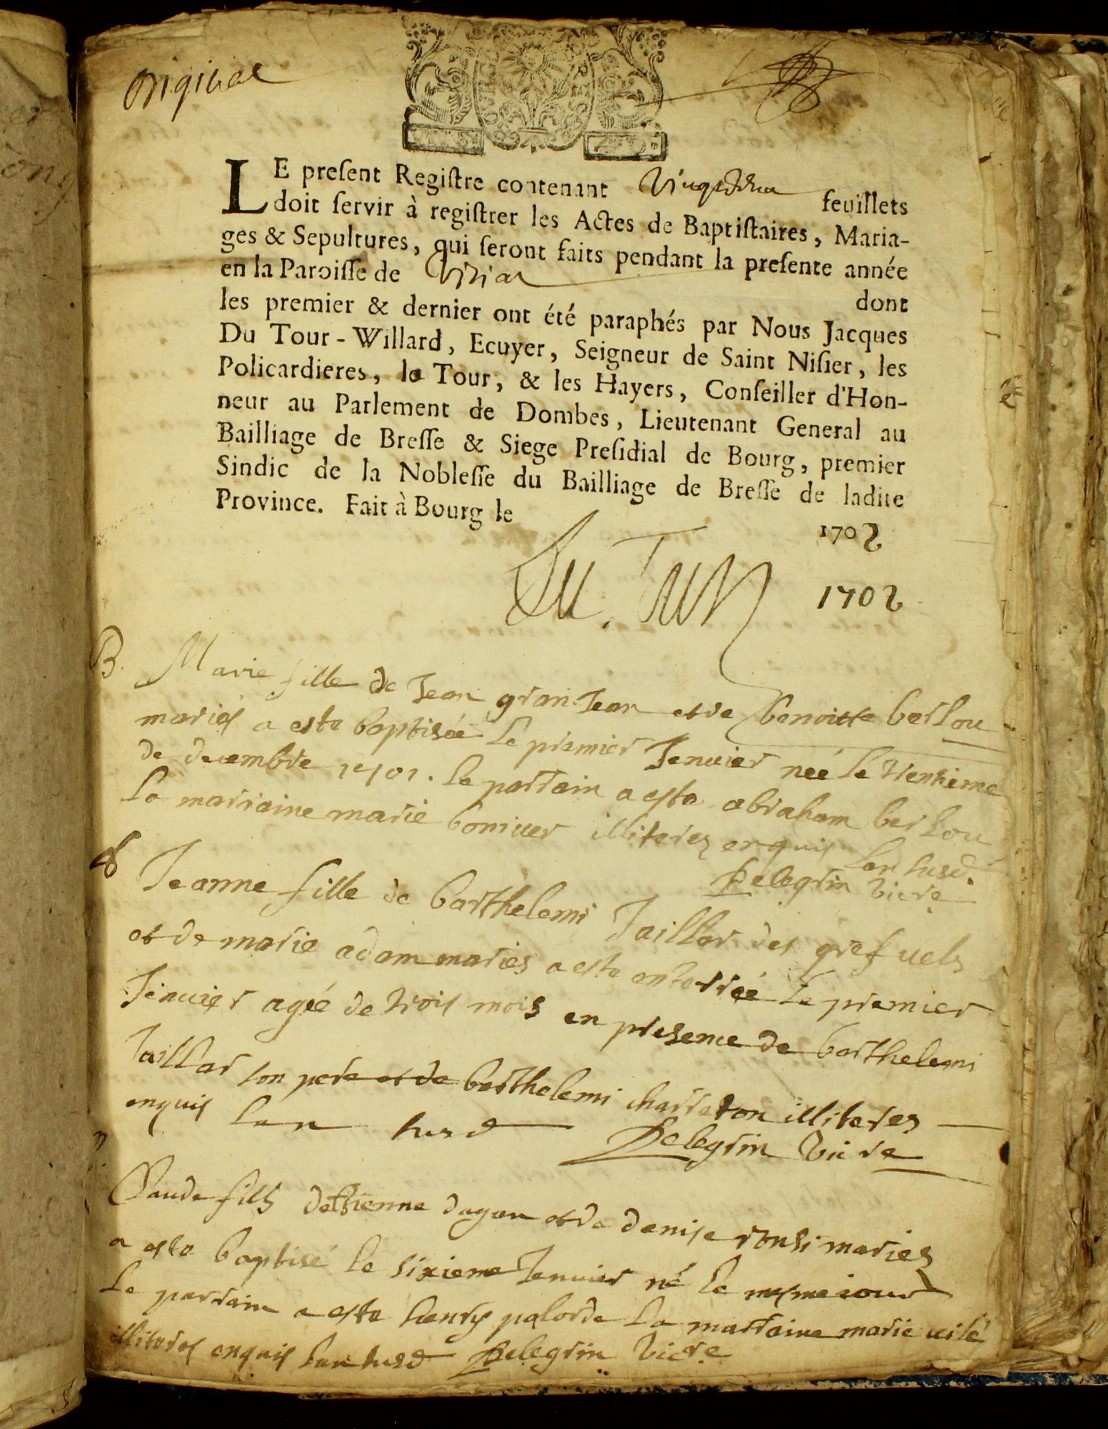 Original
LE present Registre contenant vingtdeux feuillets
doit servir à registrer les Actes de Baptistaires, Maria-
ges & Sepultures, qui seront faits pendant la presente année
en la Paroisse de Viriat dont
les premier & dernier ont été paraphés par Nous Jacques
Du Tour-Willard, Ecuyer, Seigneur de Saint Nisier, les
Policardieres, la Tour, & les Hayers, Conseiller d'Hon-
neur au Parlement de Dombes, Lieutenant General au
Bailliage de Bresse & Siege Presidial de Bourg, premier
Sindic de la Noblesse du Bailliage de Bresse de ladite
Province. Fait à Bourg le 1702
Du Tour 1702
B. Marie fille de Jean gran Jean et de benoitte berlou
mariés a esté baptisée le premier Jenvier née le trentieme
de decembre 1701. le parrain a esté abraham berlou
la marraine marie illiteres enquis
Pelegrin vicre
Jeanne fille de barthelemi Taillar des
et de marie adam mariés a esté enterrée le premier
Jenvier agée de trois mois en presence de barthelemi
Taillar son pere et de barthelemi charreton illiteres
enquis Pelegrin vicre
B. Claude fils detienne dagan et de denise mariés
a esté baptisé le sixieme Jenvier né le mesme jour
le parrain a esté henry palorde la marraine marie
illiteres enquis Pelegrin vicre